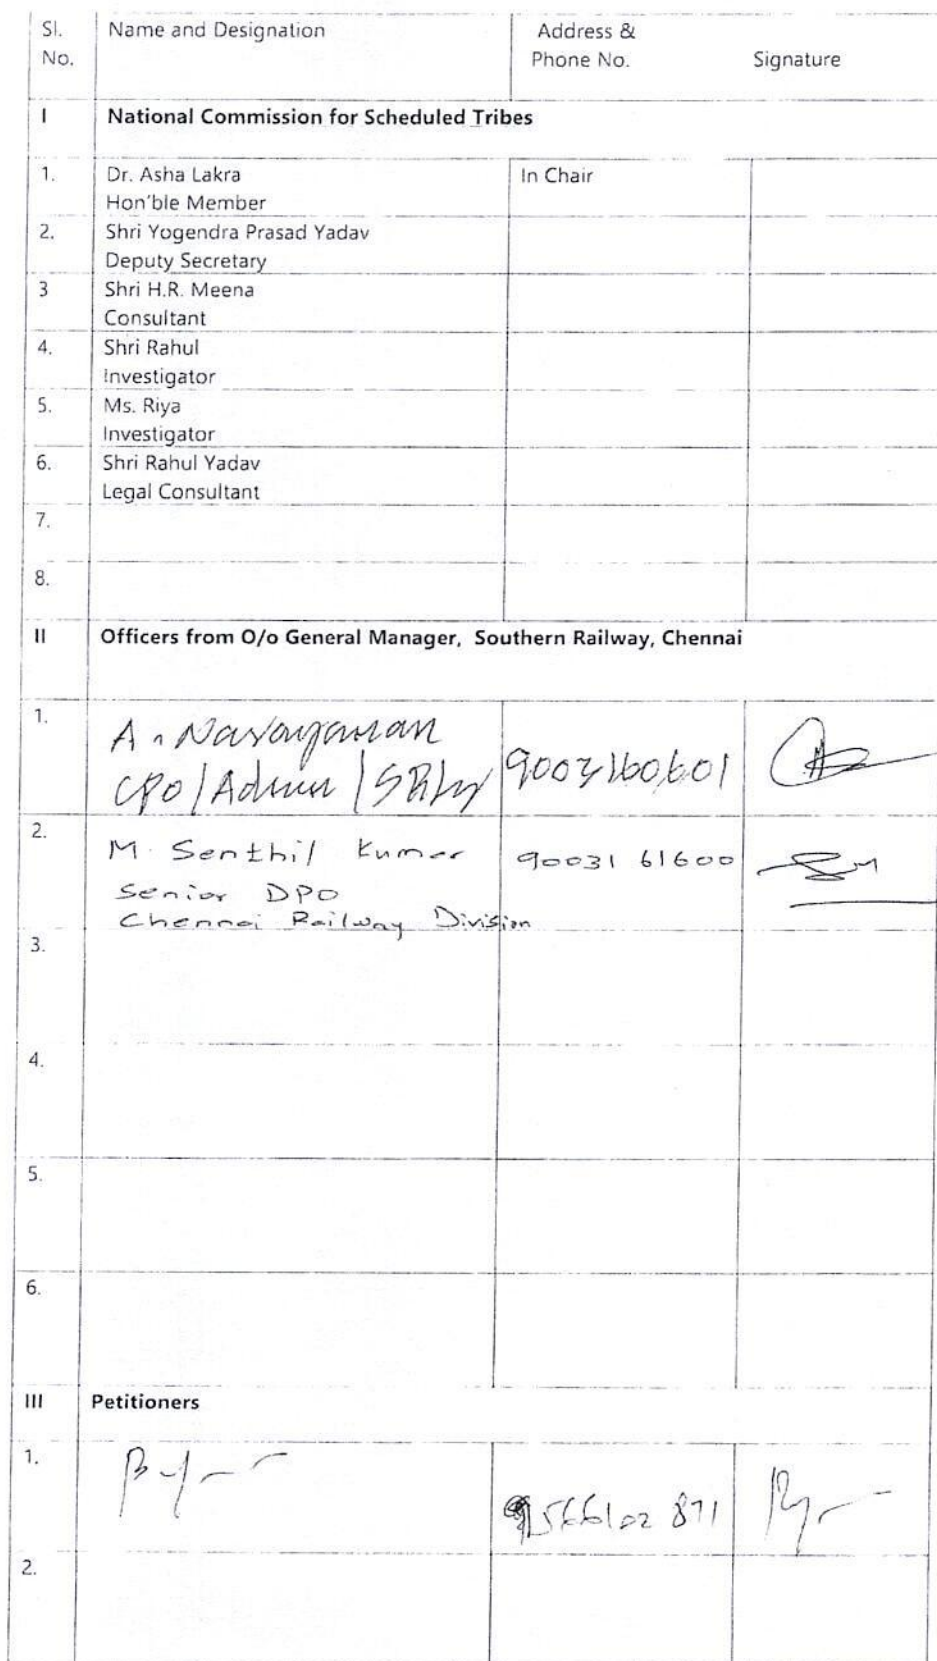 Sl. Name and Designation Address &
No. Phone No. Signature
I National Commission for Scheduled Tribes
1. Dr. Asha Lakra In Chair
Hon'ble Member
2. Shri Yogendra Prasad Yadav
Deputy Secretary
3 Shri H.R. Meena
Consultant
4. Shri Rahul
Investigator
5. Ms. Riya
Investigator
6. Shri Rahul Yadav
Legal Consultant
7.
8.
II Officers from O/o General Manager, Southern Railway, Chennai
1. A. Narayanan
CPO/Admin/SRly 9003160601
2. M. Senthil Kumar 90031 61600
Senior DPO
Chennai Railway Division
3.
4.
5.
6.
III Petitioners
1.
9566102 871
2.